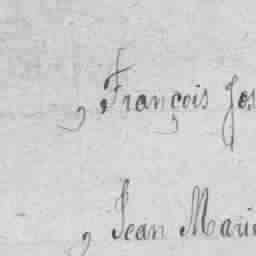 , François Jos
, Jean Marie